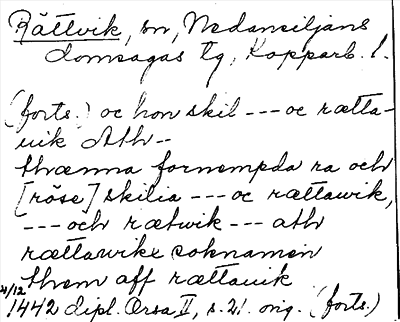 Rättvik, sn, Nedansiljans
domsagas tg, Kopparb. l.
(forts.) oc hon skil --- oc rætta-
uik Ath--
thænna fornempda ra och
[röse] skilia --- oc rættawik,
--- och rætwik --- ath
rættawike soknamen
them aff rættauik
4/12
1442 dipl. Orsa II, s. 21. orig. (forts.)